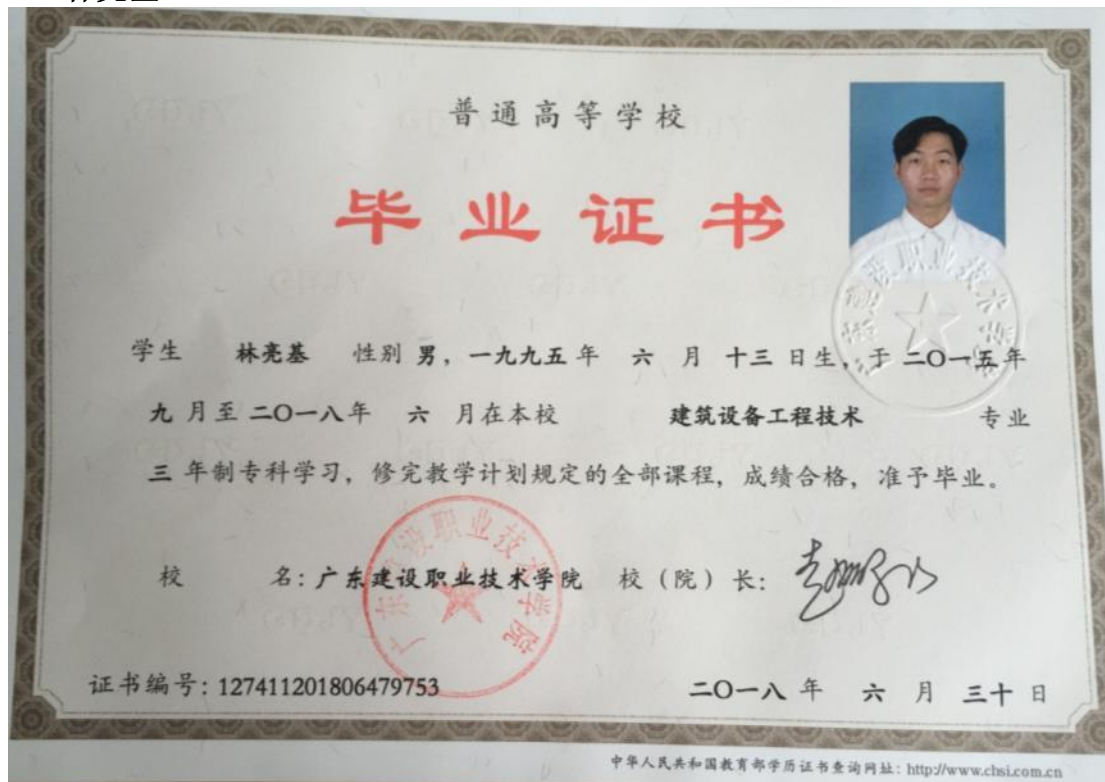 普通高等学校
毕业证书
学生 林亮基 性别 男，一九九五 年 六 月 十三 日生，于 二〇一五 年
九 月至 二〇一八 年 六 月在本校 建筑设备工程技术 专业
三 年制专科学习，修完教学计划规定的全部课程，成绩合格，准予毕业。
校 名：广东建设职业技术学院 校（院）长：
广东建设职业技术学院
证书编号：127411201806479753 二〇一八 年 六 月 三十 日
中华人民共和国教育部学历证书查询网址：http://www.chsi.com.cn